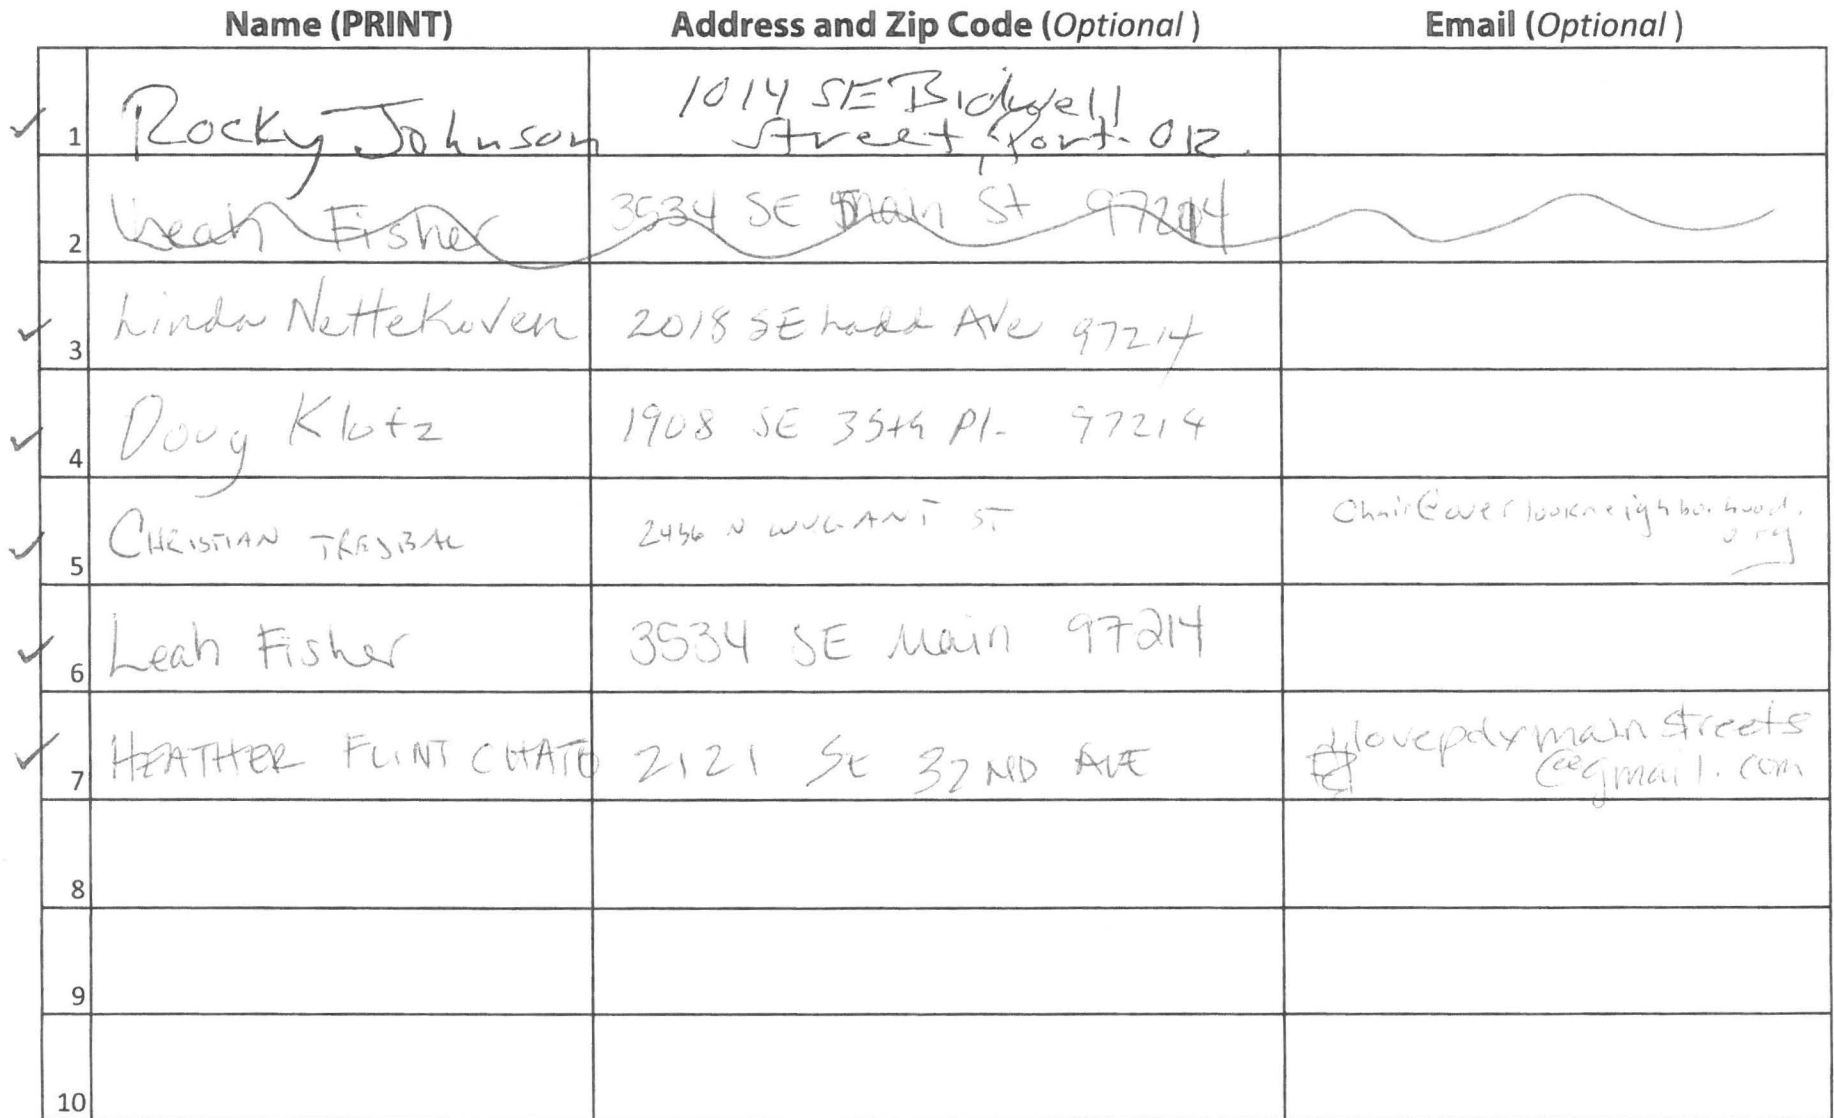 Name (PRINT) Address and Zip Code (Optional) Email (Optional)
1 Rocky Johnson 1014 SE Bidwell
Street, Port. OR.
2 Leah Fisher 3534 SE Main St 97214
3 Linda Nettekoven 2018 SE Ladd Ave 97214
4 Doug Klotz 1908 SE 35th Pl- 97214
5 CHRISTIAN TREJBAL N ST chair@overlookneighborhood.
org
6 Leah Fisher 3534 SE Main 97214
7 HEATHER FLINT CHATO 2121 SE 32ND AVE ilovepdxmainstreets
@gmail.com
8
9
10